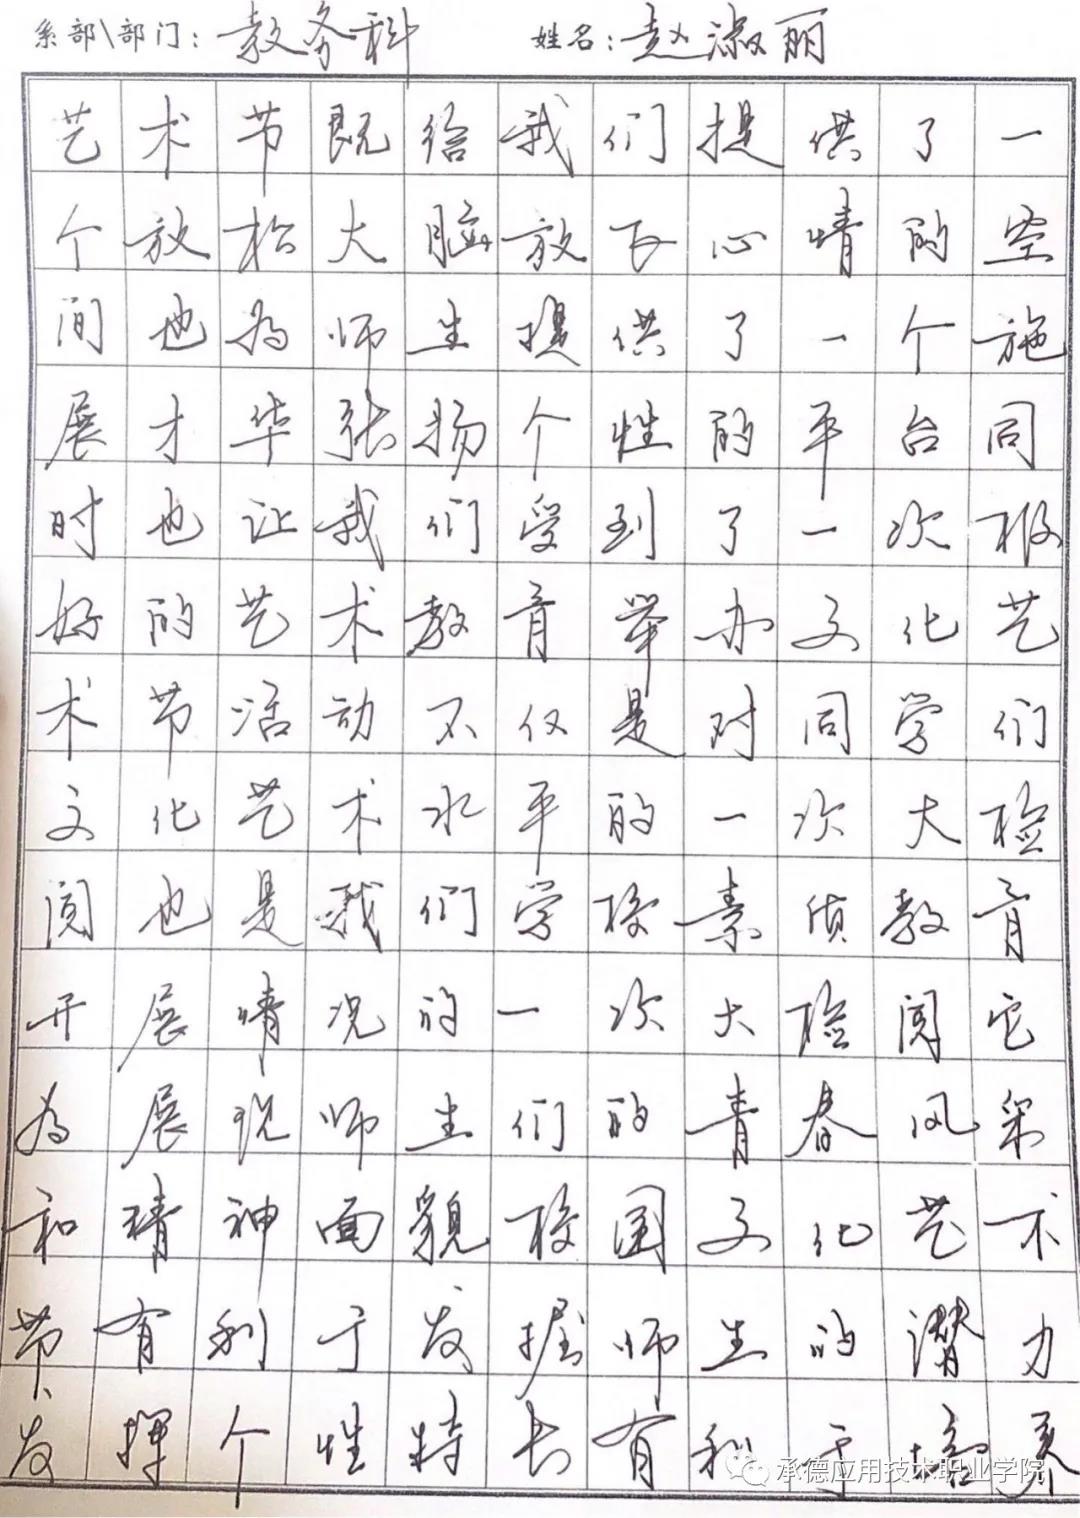 系部\部门：教务科 姓名：赵淑丽
艺术节既给我们提供了一
个放松大脑放飞心情的空
间也为师生提供了一个施
展才华张扬个性的平台同
时也让我们受到了一次极
好的艺术教育举办文化艺
术节活动不仅是对同学们
文化艺术水平的一次大检
阅也是我们学校素质教育
开展情况的一次大检阅它
为展现师生们的青春风采
和精神面貌校园文化艺术
节有利于发掘师生的潜力
发挥个性特长有利于培养
承德应用技术职业学院